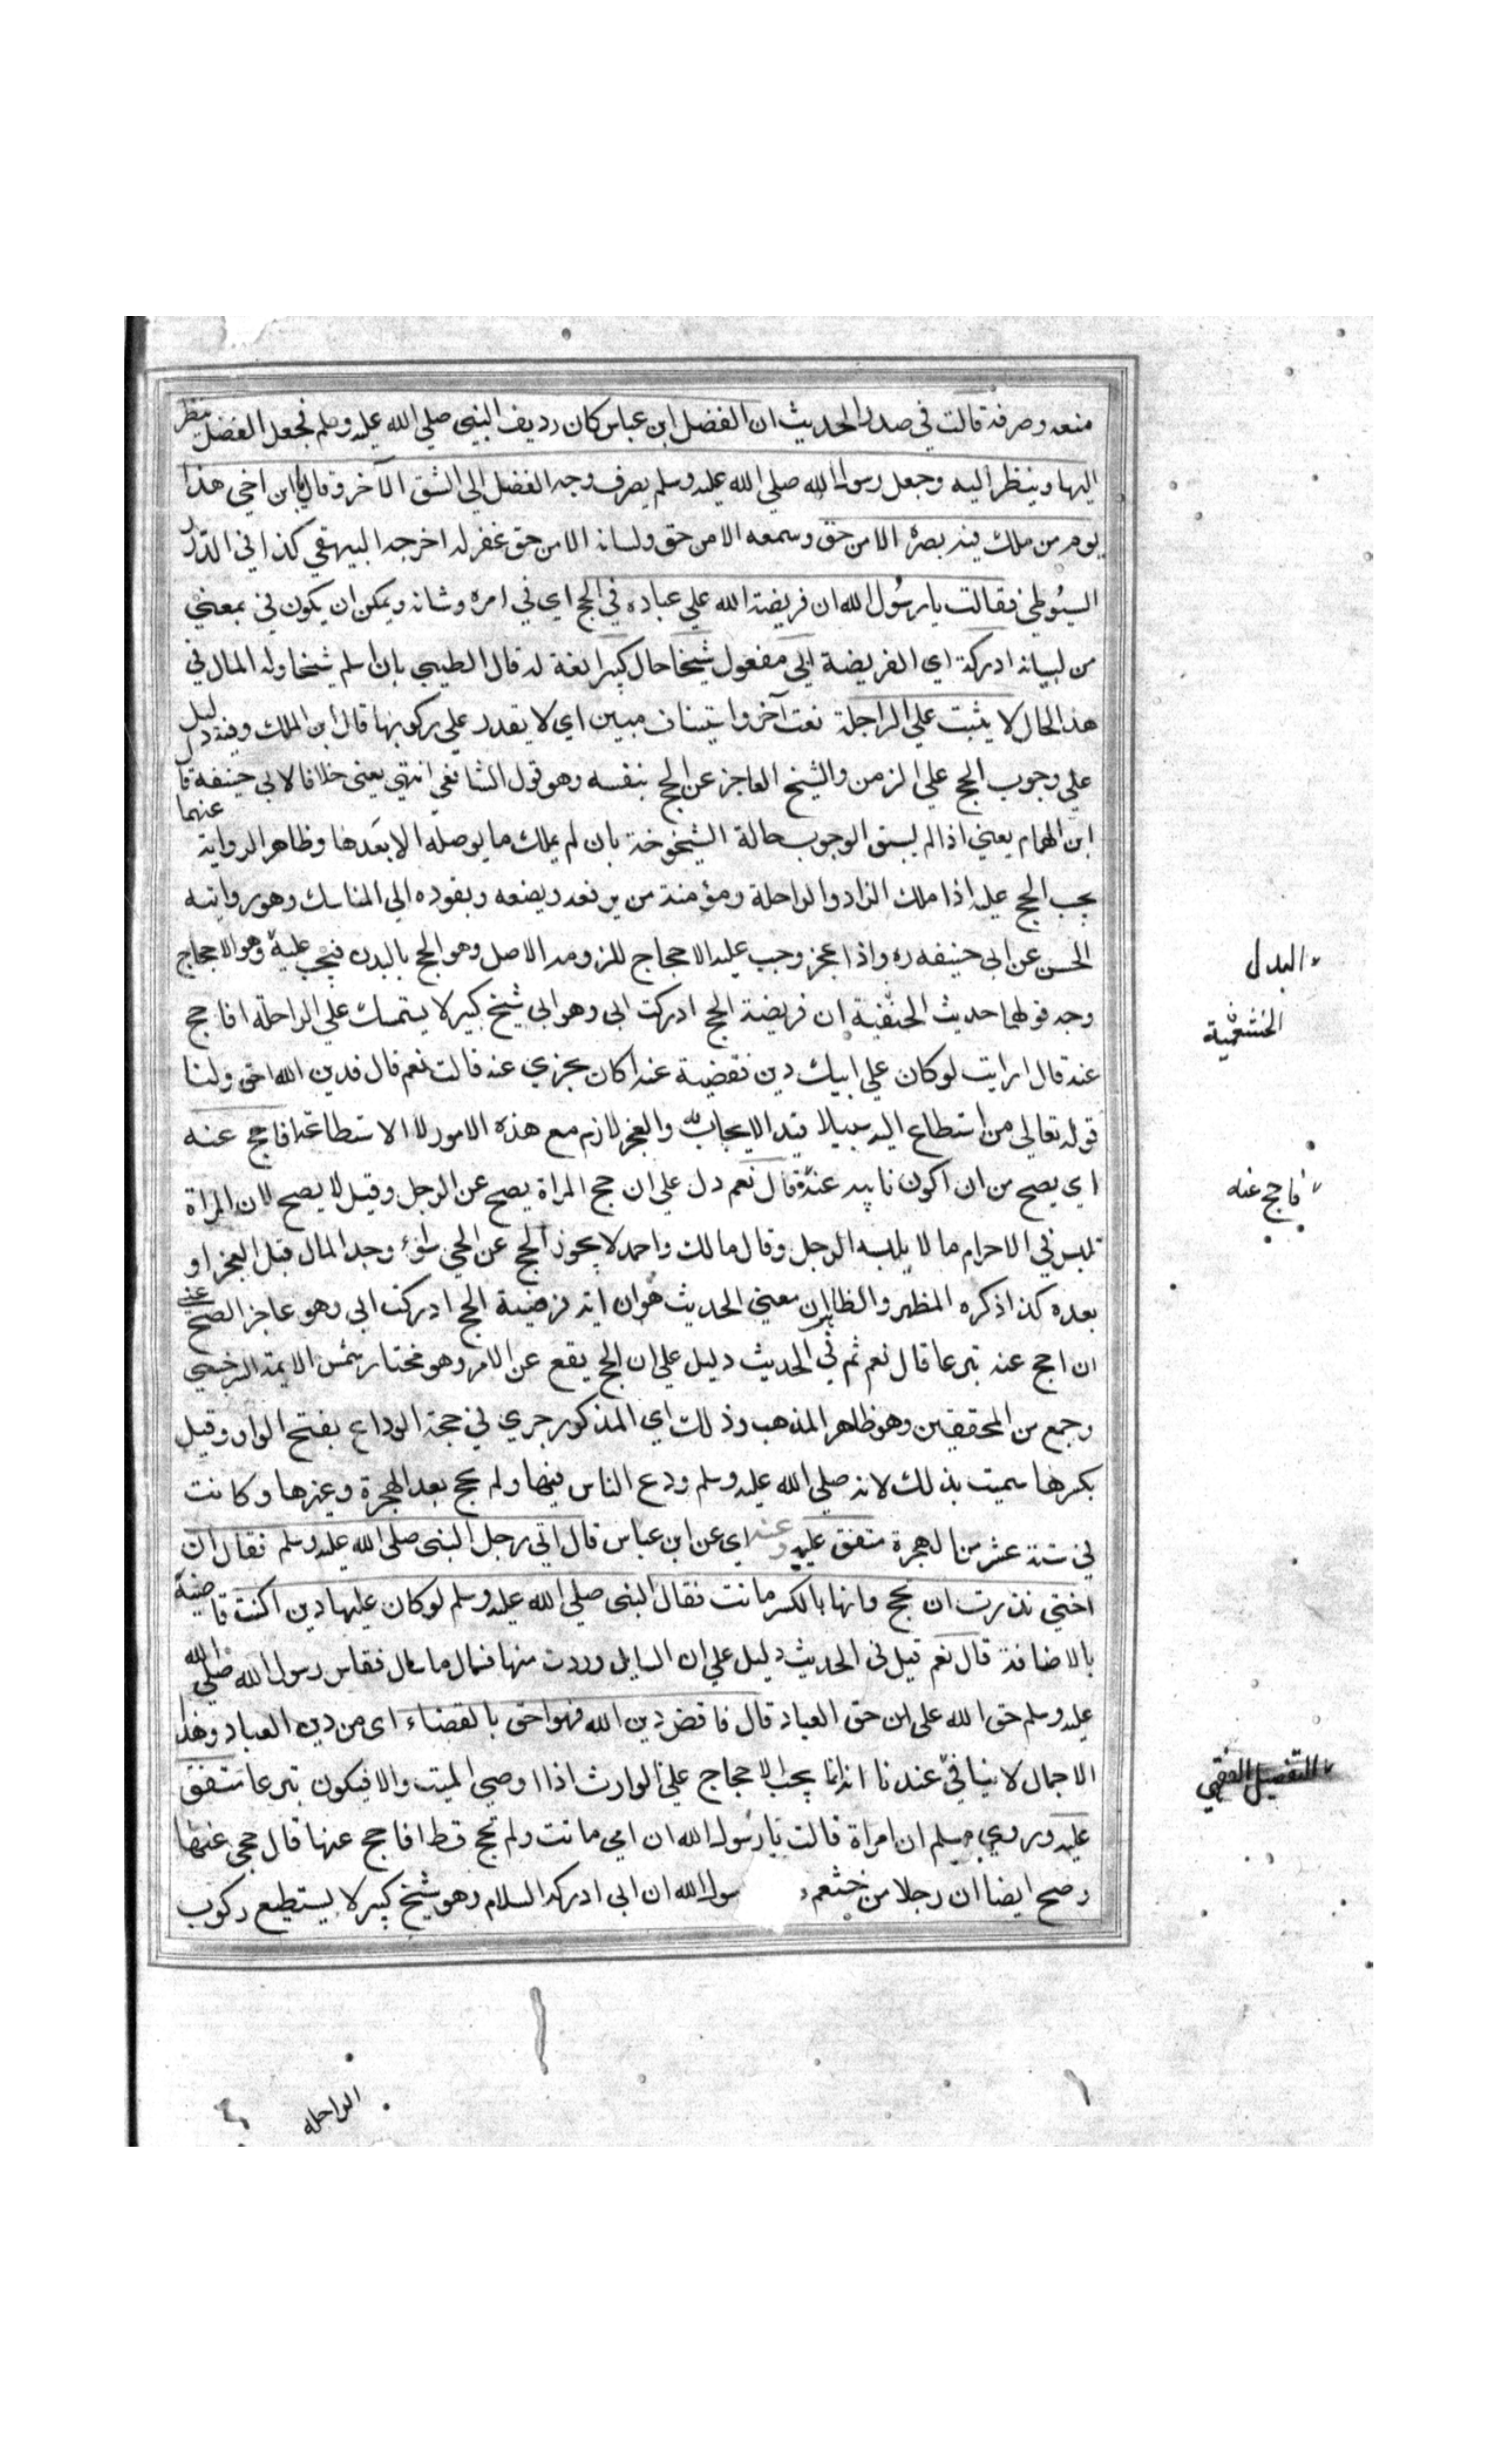 منعه وصرفه قالت في صدر الحديث ان الفضل ابن عباس كان رديف النبي صلي الله عليه وسلم فجعل الفضل ينظر
اليها وينظر اليه وجعل رسول الله صلي الله عليه وسلم يصرف وجه الفضل الي الشق الآخر وقال يا ابن اخي هذا
يوم من ملك فيه بصره الا من حق وسمعه الا من حق ولسانه الا من حق غفر له اخرجه البيهقي كذا في الدرر
السيوطي فقالت يا رسول الله ان فريضة الله علي عباده في الحج اي في امره وشانه ويمكن ان يكون في بمعني
من لبيانه ادركت اي الفريضة ابي مفعول شيخا حال كبيرا نعة له قال الطيبي بان اسلم شيخا وله المال في
هذا الحال لا يثبت علي الراحلة نعت آخر واستيناف مبين اي لا يقدر علي ركوبها قال ابن الملك وفيه دليل
علي وجوب الحج علي الزمن والشيخ العاجز عن الحج بنفسه وهو قول الشافعي انتهي يعني خلافا لابي حنيفه قا
ابن الهمام يعني اذا لم يسبق الوجوب حالة الشيخوخة بان لم يملك ما يوصله الا بعدها وظاهر الرواية عنهما
يجب الحج عليه اذا ملك الزاد والراحلة ومؤمنة من يرفعه ويضعه ويقوده الي المناسك وهو رواية
الحسن عن ابي حنيفه ره واذا عجز وجب عليه الاحجاج للزومه الاصل وهو الحج بالبدن فيجب عليه وهو الاحجاج
البدل
وجه قولهما حديث الحنفية ان فريضة الحج ادركت ابي وهو ابي شيخ كبير لا يستمسك علي الراحلة افاحج
الخثعمية
عنه قال ارايت لو كان علي ابيك دين فقضية عنه اكان يجزي عنه قالت نعم قال فدين الله احق ولنا
قوله تعالي من استطاع اليه سبيلا قيد الايجاب به والعجز لازم مع هذه الامور لا الاستطاعة افاحج عنه
اي يصح من ان اكون نايبه عنه قال نعم دل علي ان حج المراة يصح عن الرجل وقيل لا يصح لان المراة
فاحج عنه
تلبس في الاحرام ما لا يلبسه الرجل وقال مالك واحمد لا يجوز الحج عن الحي سواء وجد المال قبل العجز او
بعده كذا ذكره المظهر والظاهر ان معني الحديث هو ان ايه فرضية الحج ادركت ابي وهو عاجز الصح عني
ان احج عنه تبرعا قال نعم ثم في الحديث دليل علي ان الحج يقع عن الامر وهو مختار شمس الايمة السرخسي
وجمع من المحققين وهو ظاهر المذهب وذلك اي المذكور جري في حجة الوداع بفتح الواو وقيل
بكسرها سميت بذلك لانه صلي الله عليه وسلم ودع الناس فيها ولم يحج بعد الهجرة وغيرها وكانت
في سنة عشر من الهجرة متفق عليه وعنه اي عن ابن عباس قال اتي رجل النبي صلي الله عليه وسلم فقال ان
اختي نذرت ان تحج وانها بالكسر ماتت فقال النبي صلي الله عليه وسلم لو كان عليها دين اكنت قاضيه
بالاضافة قال نعم قيل في الحديث دليل علي ان السايل وردت منها فسال ما سال فقاس رسول الله صلي الله
عليه وسلم حق الله علي ابن حق العباد قال فاقض دين الله فهو احق بالقضاء اي من دين العباد وهذا
الاجمال لا ينافي عندنا انه انما يجب الاحجاج علي الوارث اذا اوصي الميت والا فيكون تبرعا متفق
التفصيل الفقهي
عليه وروي مسلم ان امراة قالت يا رسول الله ان امي ماتت ولم تحج قط افاحج عنها قال حجي عنها
وصح ايضا ان رجلا من خثعم سول الله ان ابي ادركه السلام وهو شيخ كبير لا يستطيع ركوب
الراحلة